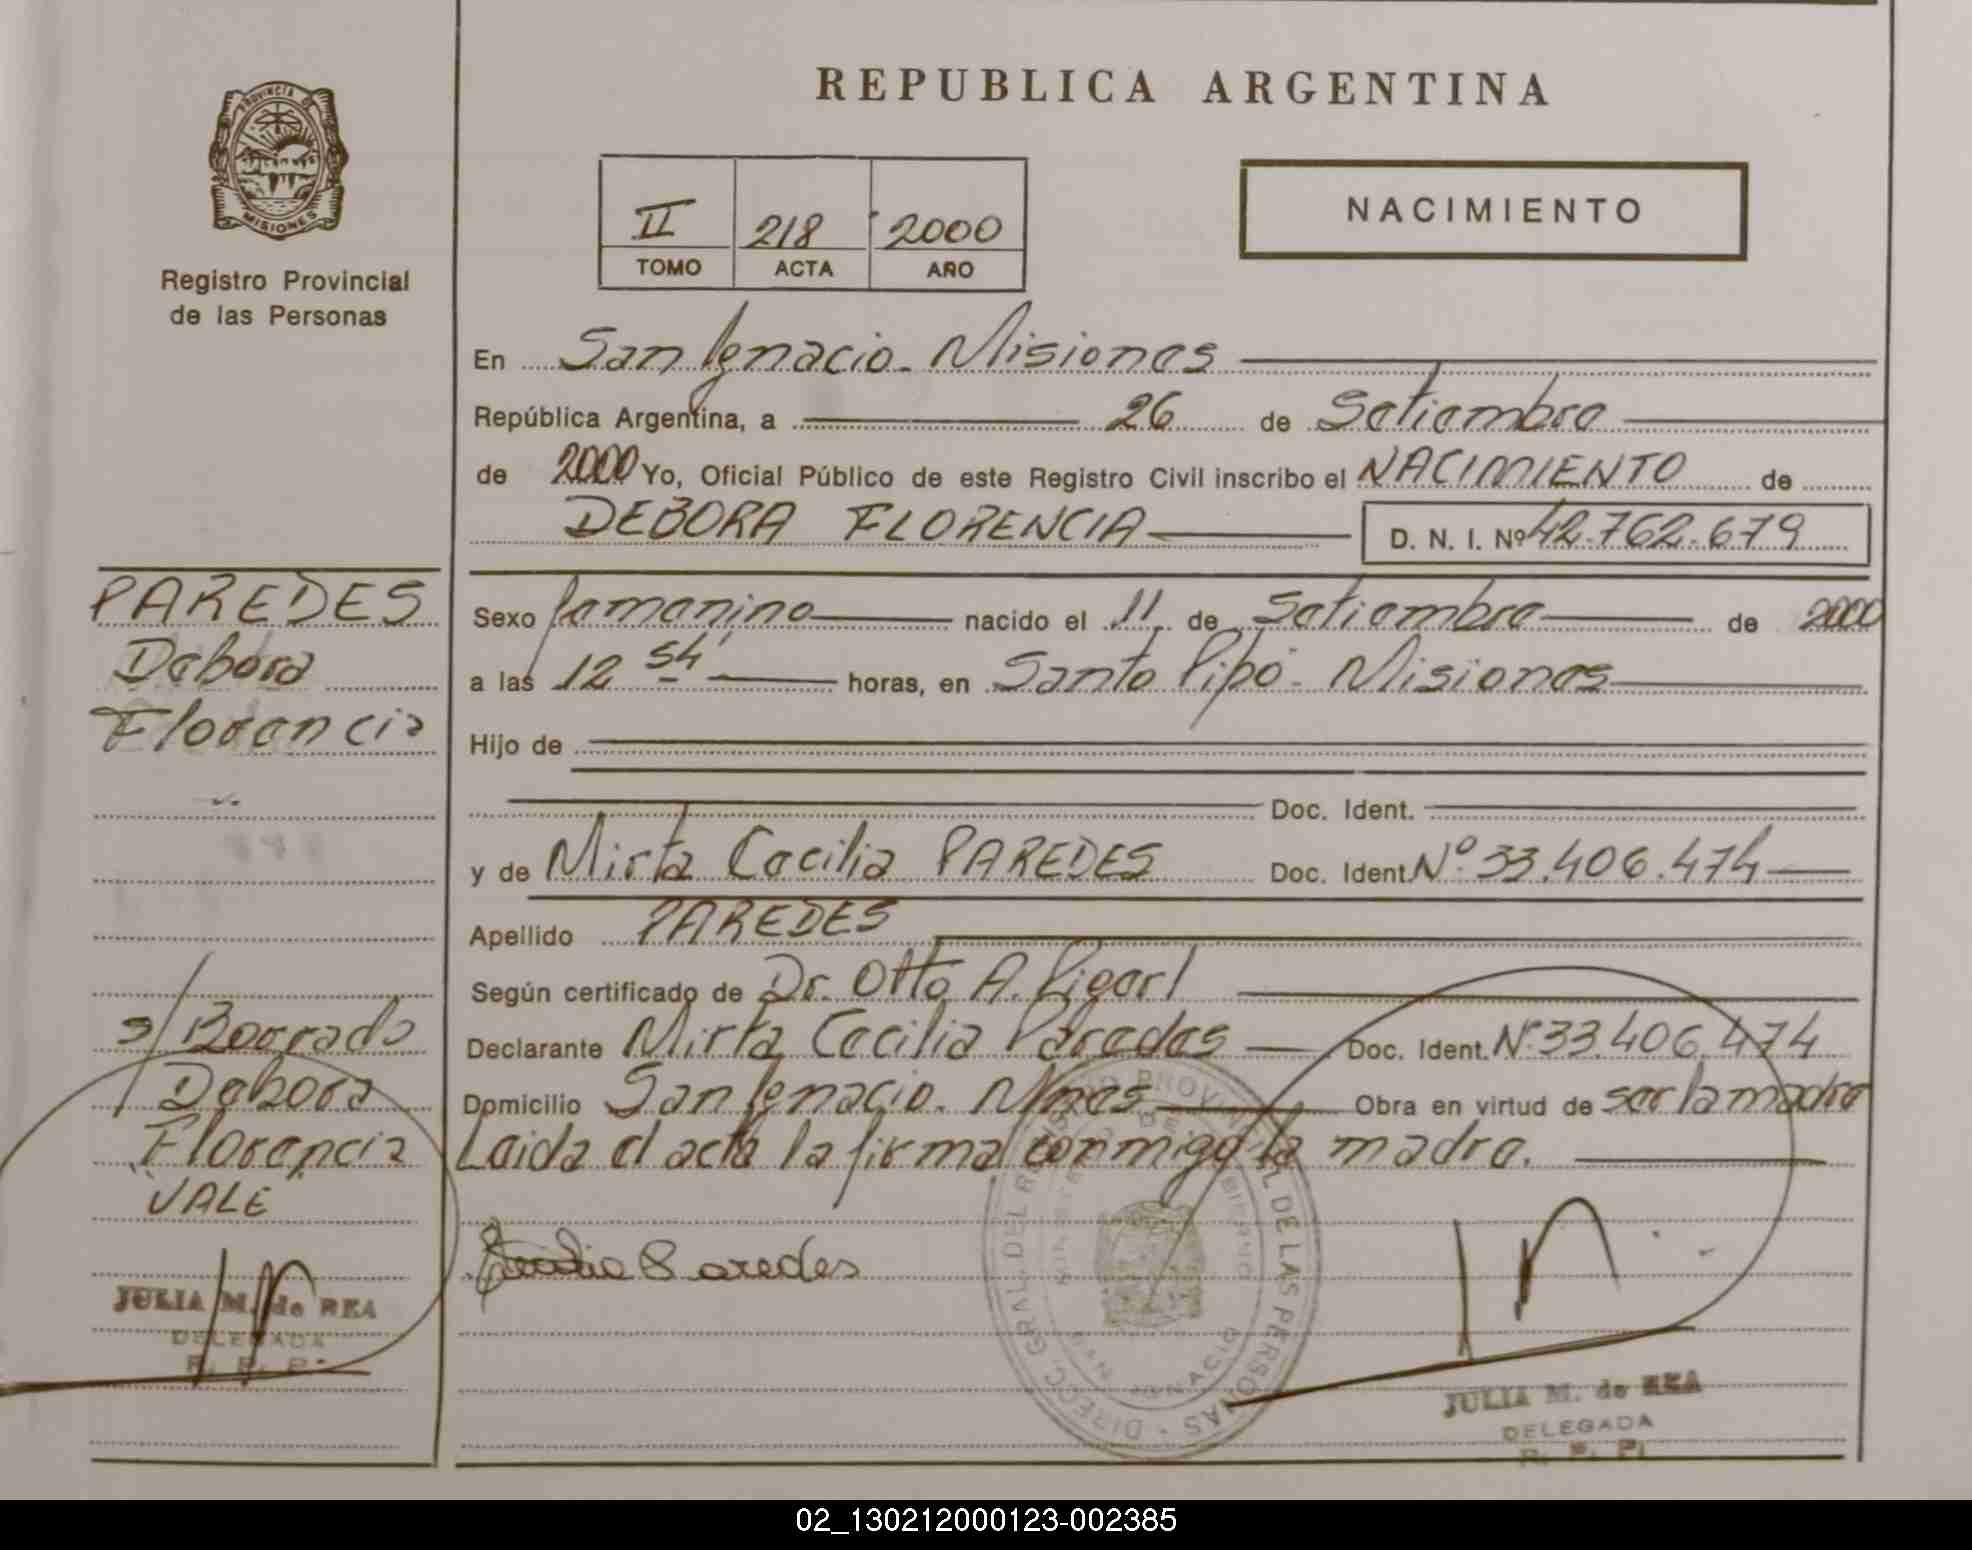 REPUBLICA ARGENTINA
PROVINCIA DE
MISIONES
Registro Provincial
de las Personas
II 218 2000
TOMO ACTA AÑO
NACIMIENTO
En San Ignacio - Misiones
República Argentina, a 26 de Setiembre
de 2000 Yo, Oficial Público de este Registro Civil inscribo el NACIMIENTO de
DEBORA FLORENCIA D. N. I. Nº 42.762.679
Sexo femenino nacido el 11 de Setiembre de 2000
a las 12 54' horas, en Santo Pipó - Misiones
Hijo de
Doc. Ident.
y de Mirta Cecilia PAREDES Doc. Ident. Nº 33.406.474
Apellido PAREDES
Según certificado de Dr. Otto A.
Declarante Mirta Cecilia Paredes Doc. Ident. Nº 33.406.474
Domicilio San Ignacio. Mnes Obra en virtud de ser la madre
Leida el acta la firma conmigo la madre.
Cecilia Paredes
DIRECC. GRAL. DEL REGISTRO PROVINCIAL DE LAS PERSONAS
SAN IGNACIO
JULIA M. de REA
DELEGADA
R. P. P.
PAREDES
Debora
Florencia
s/ Borrado
Debora
Florencia
"VALE"
JULIA M. de REA
DELEGADA
R. P. P.
02_130212000123-002385